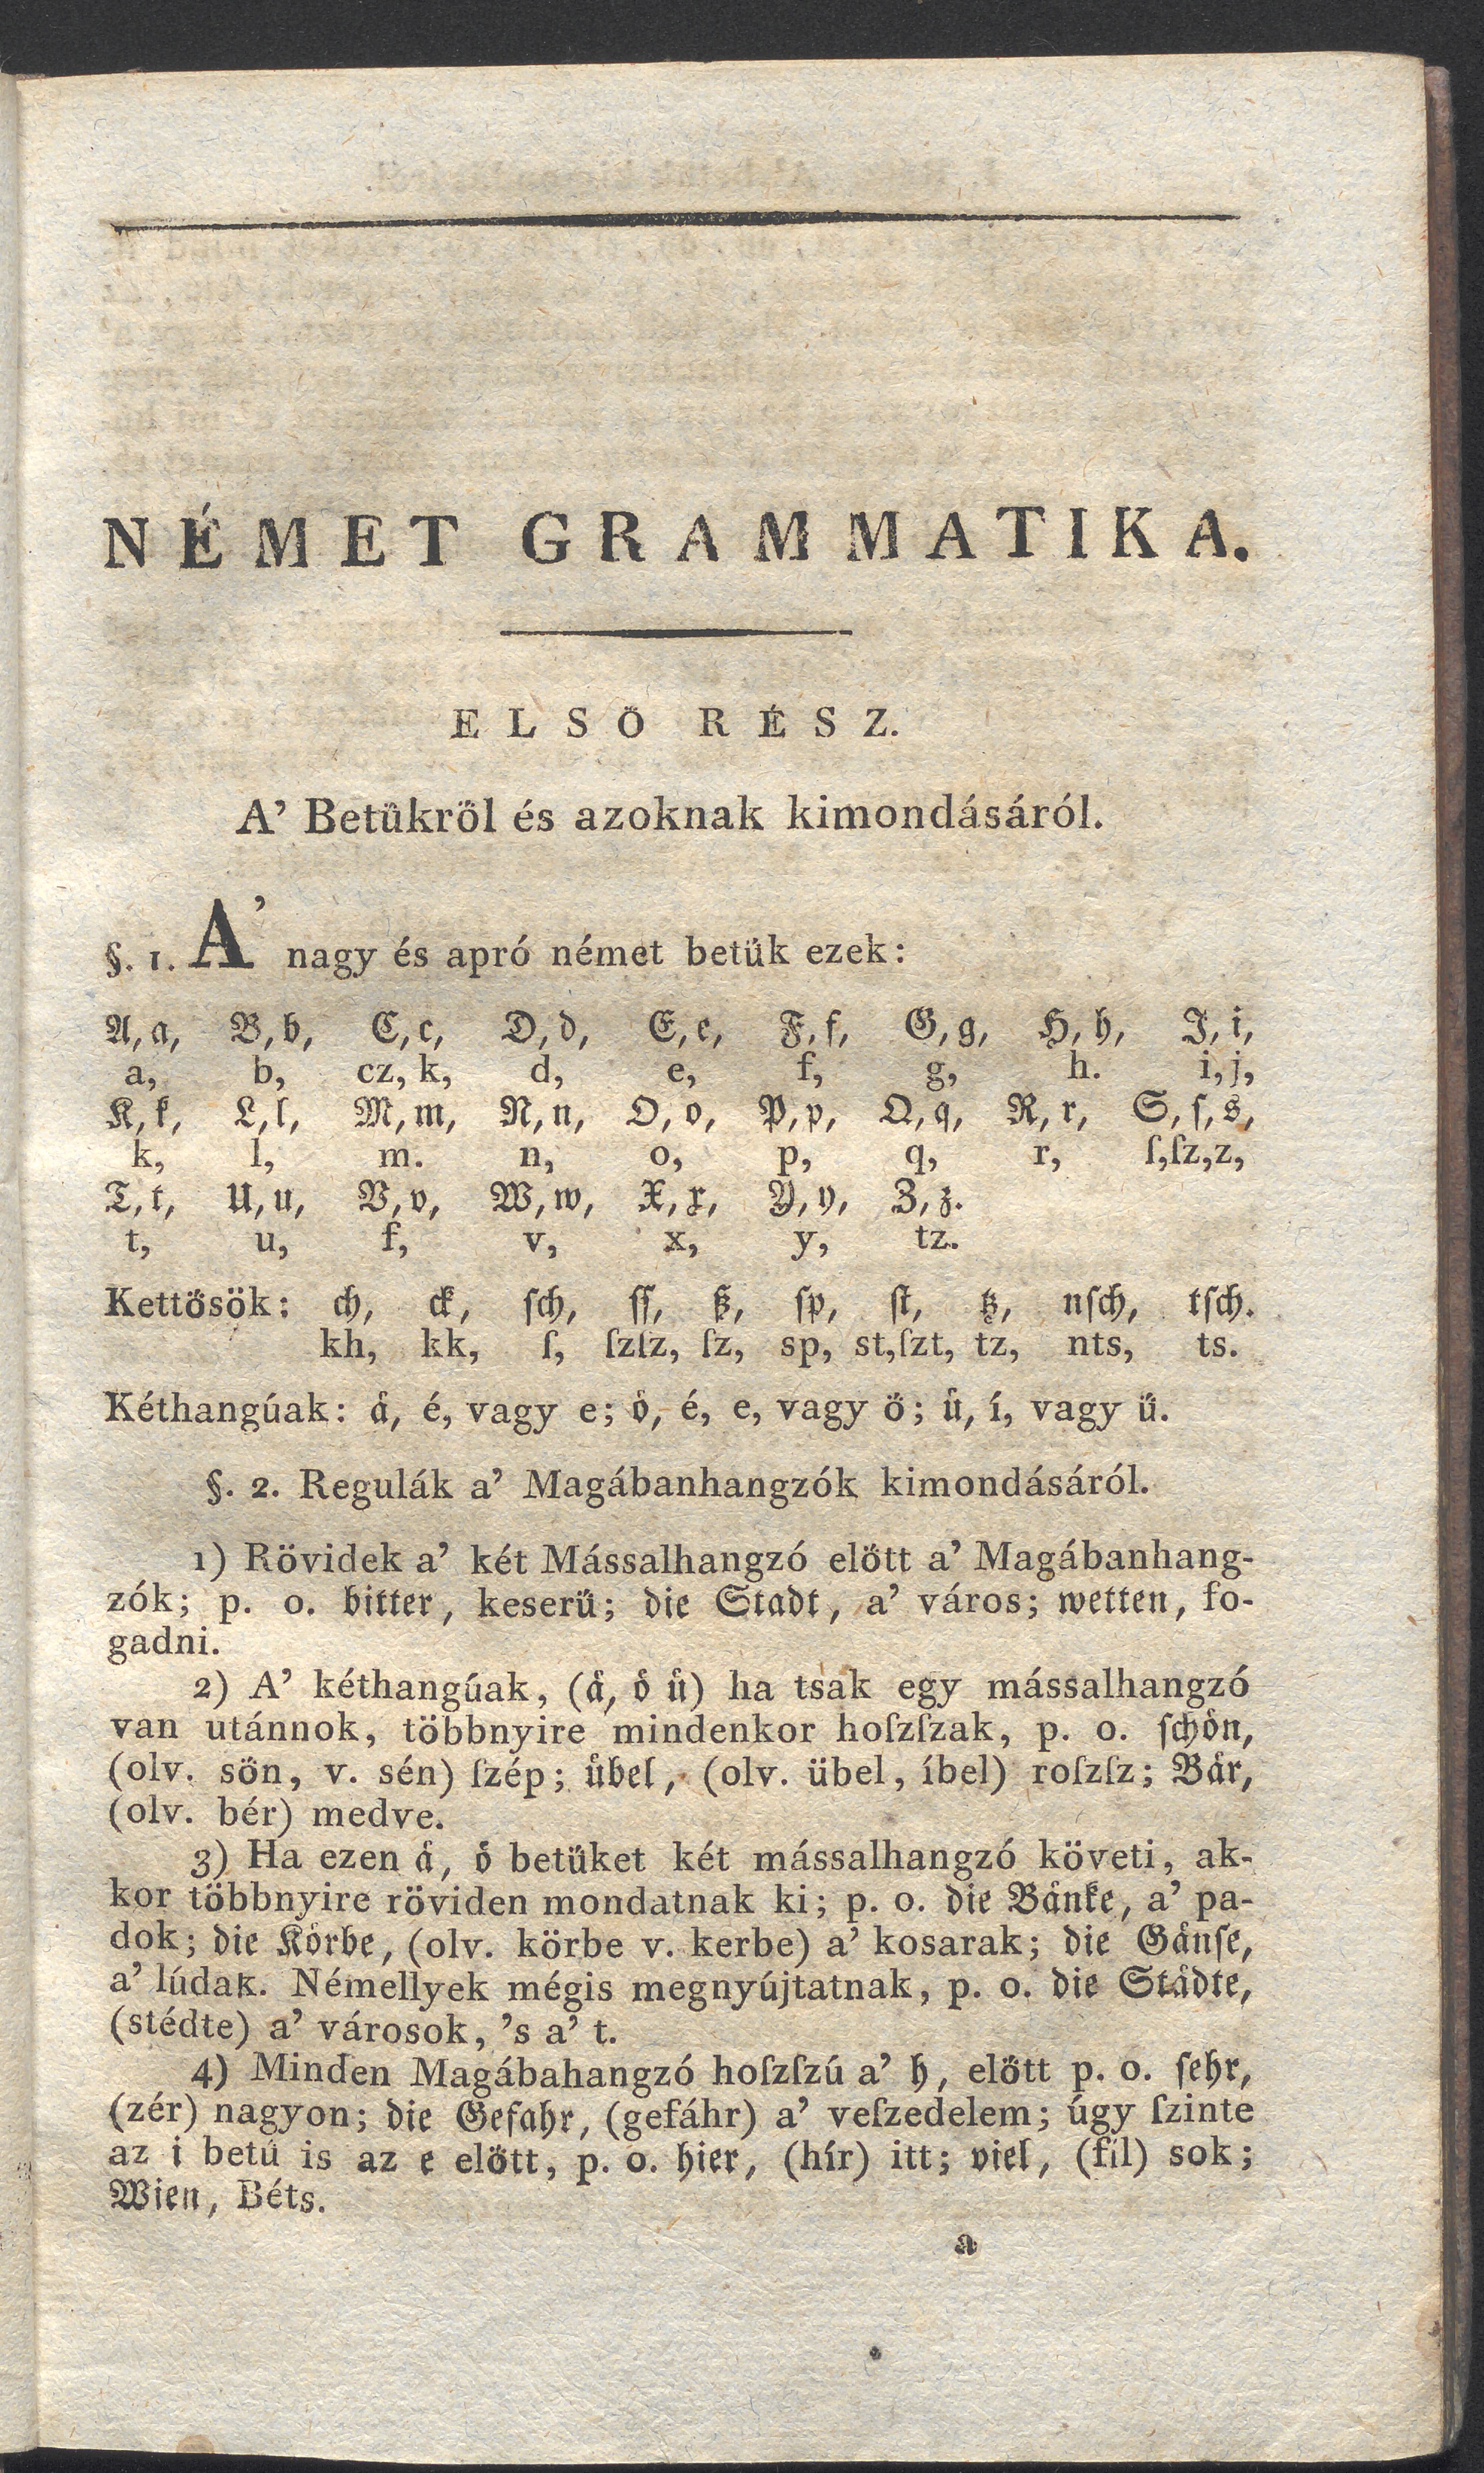 NÉMET GRAMMATIKA.
ELSŐ RÉSZ.
A’ Betűkről és azoknak kimondásáról.
§. 1. A’ nagy és apró német betük ezek:
A, a, B, b, C, c, D, d, E, e, F, f, G, g, H, h, I, i,
a, b, cz, k, d, e, f, g, h. i, j,
K, k, L, l, M, m, N, n, O, o, P, p, Q, q, R, r, S, ſ, s,
k, l, m. n, o, p, q, r, ſ, ſz, z,
T, t, U, u, V, v, W, w, X, x, Y, y, Z, z.
t, u, f, v, x, y, tz.
Kettősök: ch, ck, ſch, ſſ, ß, ſp, ſt, tz, nſch, tſch.
kh, kk, ſ, ſzſz, ſz, sp, st, ſzt, tz, nts, ts.
Kéthangúak: aͤ, é, vagy e; oͤ, é, e, vagy ö; uͤ, í, vagy ű.
§. 2. Regulák a’ Magábanhangzók kimondásáról.
1) Rövidek a’ két Mássalhangzó előtt a’ Magábanhang-
zók; p. o. bitter, keserű; die Stadt, a’ város; wetten, fo-
gadni.
2) A’ kéthangúak, (aͤ, oͤ uͤ) ha tsak egy mássalhangzó
van utánnok, többnyire mindenkor hoſzſzak, p. o. ſchoͤn,
(olv. sön, v. sén) ſzép; uͤbel, (olv. übel, íbel) roſzſz; Baͤr,
(olv. bér) medve.
3) Ha ezen aͤ, oͤ betüket két mássalhangzó követi, ak-
kor többnyire röviden mondatnak ki; p. o. die Baͤnke, a’ pa-
dok; die Koͤrbe, (olv. körbe v. kerbe) a’ kosarak; die Gaͤnſe,
a’ lúdak. Némellyek mégis megnyújtatnak, p. o. die Staͤdte,
(stédte) a’ városok, ’s a’ t.
4) Minden Magábahangzó hoſzſzú a’ h, előtt p. o. ſehr,
(zér) nagyon; die Gefahr, (gefáhr) a’ veſzedelem; úgy ſzinte
az i betű is az e előtt, p. o. hier, (hír) itt; viel, (fíl) sok;
Wien, Béts.
a